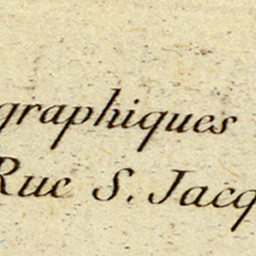 graphiques
Rue S. Jacq